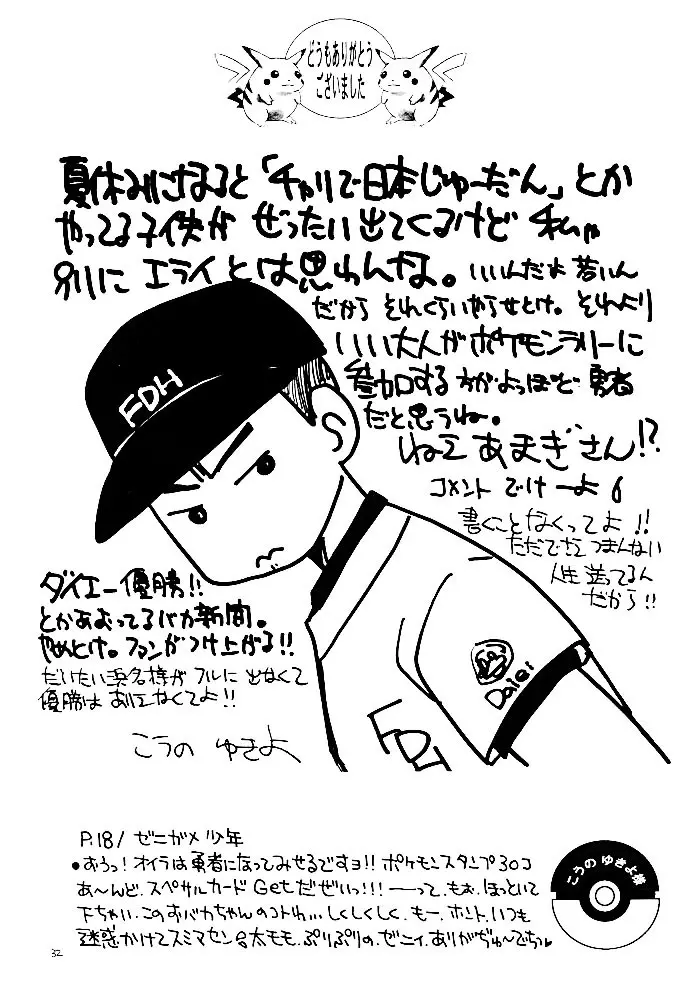 どうもありがとう
ございました
夏休みになると「チャリで日本じゅーだん」とか
やってる子供が ぜったい出てくるけど 私ゃ
別に エライとは思わんな。いいんだよ 若いん
だから それくらいやらせとけ。それより
いい大人がポケモンラリーに
参加する方がよっぽど勇者
だと思うね。
ねェ あまぎさん!?
コメント でけーよ
書くことなくってよ!!
ただでさェつまんない
人生 送ってるん
だから!!
FDH
ダイエー優勝!!
とかあおってるバカ新聞。
やめとけ。ファンがつけ上がる!!
だいたい浜名様がフルに出なくて
優勝は ありェなくてよ!!
Daiei
FDH
こうの ゆきよ
P.18/ ゼニガメ少年
●おうっ!オイラは勇者になってみせるですヨ!!ポケモンスタンプ30コ
あ〜んど、スペサルカードGetだぜいっ!!!──って、もぉ、ほっといて
下ちゃい、このおバカちゃんのコトわ…しくしくしく、もー、ホント、いつも
迷惑かけてスミマセン 太モモ、ぷりぷりの、ゼニィ、ありがぢゅ〜でちっ♥
こうの ゆきよ様
32